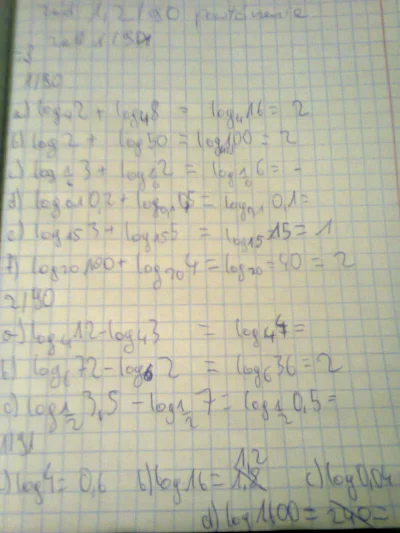 zad 1,2/90
zad 1/91
1/90
a) log₄2 + log₄8 = log₄16 = 2
b) log2 + log50 = log100 = 2
log 1/6 3 + log 1/6 2 = log 1/6 6 = -
d) log₀,₁0,2 + log₀,₁0,5 = log₀,₁0,1 =
e) log₁₅3 + log₁₅5 = log₁₅15 = 1
f) log₂₀100 + log₂₀4 = log₂₀ = 40 = 2
2/90
a) log₄12 - log₄3 = log₄4 =
b) log₆72 - log₆2 = log₆36 = 2
c) log 1/2 3,5 - log 1/2 7 = log 1/2 0,5 =
1/91
) log4 = 0,6 b) log16 = 1,2 c) log0,04
d) log1600 =